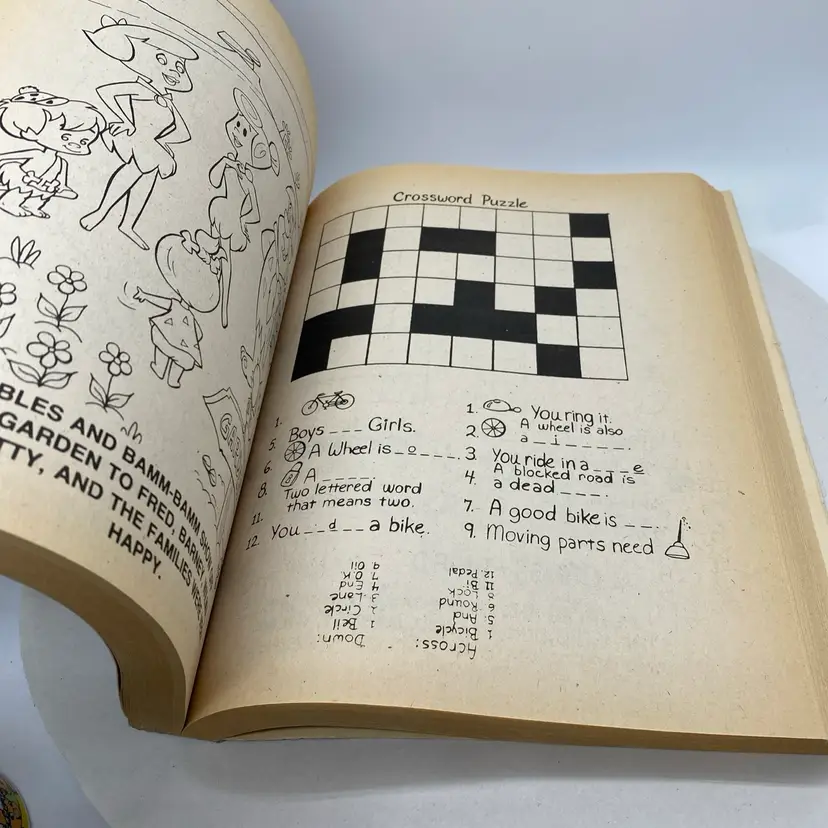 BLES AND BAMM-BAMM SHO
GARDEN TO FRED, BARNEY, WI
TTY, AND THE FAMILIES WERE
HAPPY.
Crossword Puzzle
1.
5. Boys _ _ _ Girls.
6. A Wheel is _ o _ _ _.
8. A _ _ _ _
11. Two lettered word
that means two.
12. You _ _ d _ _ a bike.
1. You ring it.
2. A wheel is also
a _ i _ _ _ _.
3. You ride in a _ _ _ e
4. A blocked road is
a dead _ _ _.
7. A good bike is _ _.
9. Moving parts need
Across:
1 Bicycle
5. And
6 Round
8 Lock
11 Bi
12. Pedal
Down:
1 Bell
2 Circle
3. Lane
4 End
7. O.K.
9 Oil